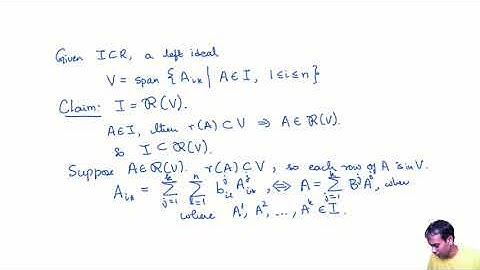 Given I⊂R, a left ideal
V = span { A_{i*} | A∈I, 1≤i≤n}
Claim: I = R(V).
A∈I, then r(A) ⊂ V ⇒ A∈R(V).
So I⊂R(V).
Suppose A∈R(V). r(A)⊂V, so each row of A is in V.
A_{i*} = ∑_{j=1}^{k} ∑_{l=1}^{n} b_{il}^{j} A_{l*}^{j}, ⇔ A = ∑_{j=1}^{k} B^{j} A^{j}, where
where A^1, A^2, ..., A^k ∈ I.